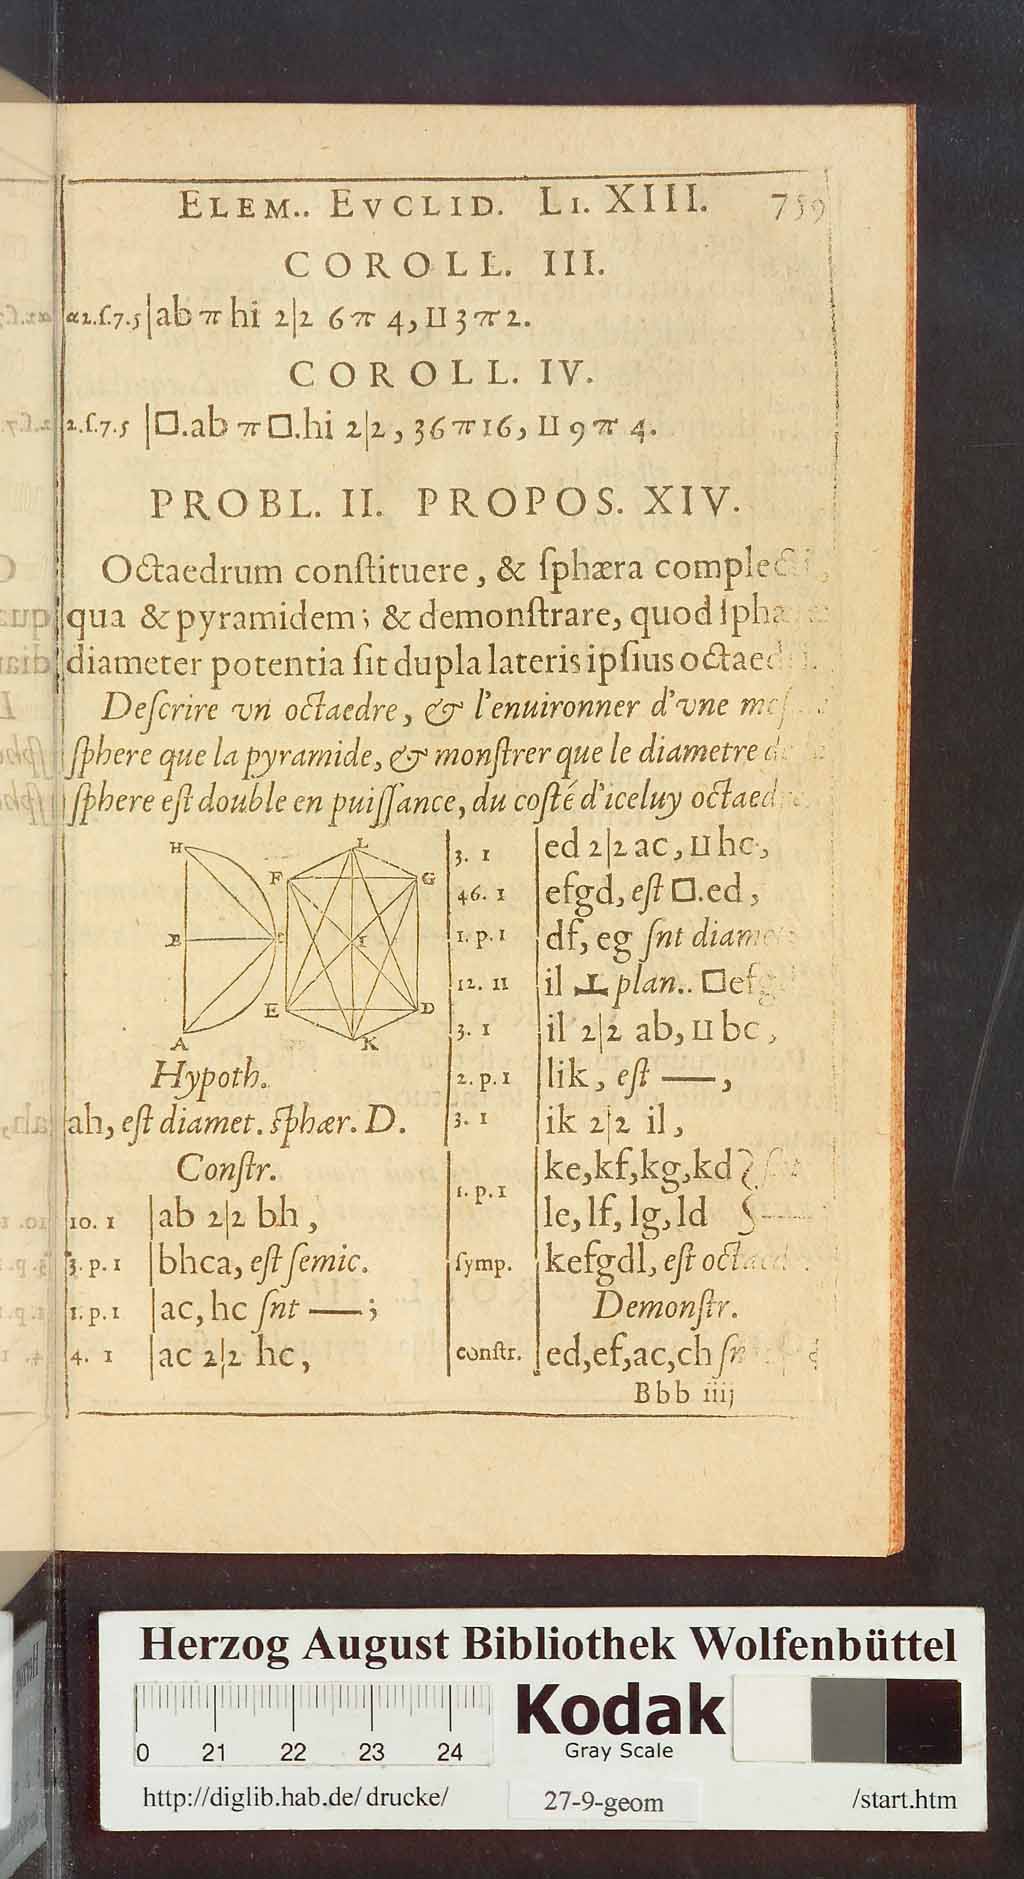 ELEM.. EVCLID. LI. XIII. 759
COROLL. III.
α2.ſ.7.5 |ab π hi 2|2 6 π 4, II 3 π 2.
COROLL. IV.
2.ſ.7.5 |□.ab π □.hi 2|2, 36 π 16, II 9 π 4.
PROBL. II. PROPOS. XIV.
Octaedrum conſtituere, & ſphæra complecti,
qua & pyramidem; & demonſtrare, quod ſphæ
diameter potentia ſit dupla lateris ipſius octaed
Deſcrire vn octaedre, & l'enuironner d'vne meſ
ſphere que la pyramide, & monſtrer que le diametre de
ſphere eſt double en puiſſance, du coſté d'iceluy octaed
H
B
C
A
L
F
G
I
E
D
K
Hypoth.
ah, eſt diamet. ſphær. D.
Conſtr.
10. 1 |ab 2|2 bh,
3. p. 1 |bhca, eſt ſemic.
1. p. 1 |ac, hc ſnt —;
4. 1 |ac 2|2 hc,
3. 1 |ed 2|2 ac, II hc,
46. 1 |efgd, eſt □.ed,
1. p. 1 |df, eg ſnt diam
12. 11 |il ⊥ plan.. □efg
3. 1 |il 2|2 ab, II bc,
2. p. 1 |lik, eſt —,
3. 1 |ik 2|2 il,
1. p. 1 |ke, kf, kg, kd
le, lf, lg, ld
ſymp. |kefgdl, eſt octaed
Demonſtr.
conſtr. |ed, ef, ac, ch ſn
Bbb iiij
Herzog August Bibliothek Wolfenbüttel
0 21 22 23 24
Kodak
Gray Scale
http://diglib.hab.de/drucke/ 27-9-geom /start.htm